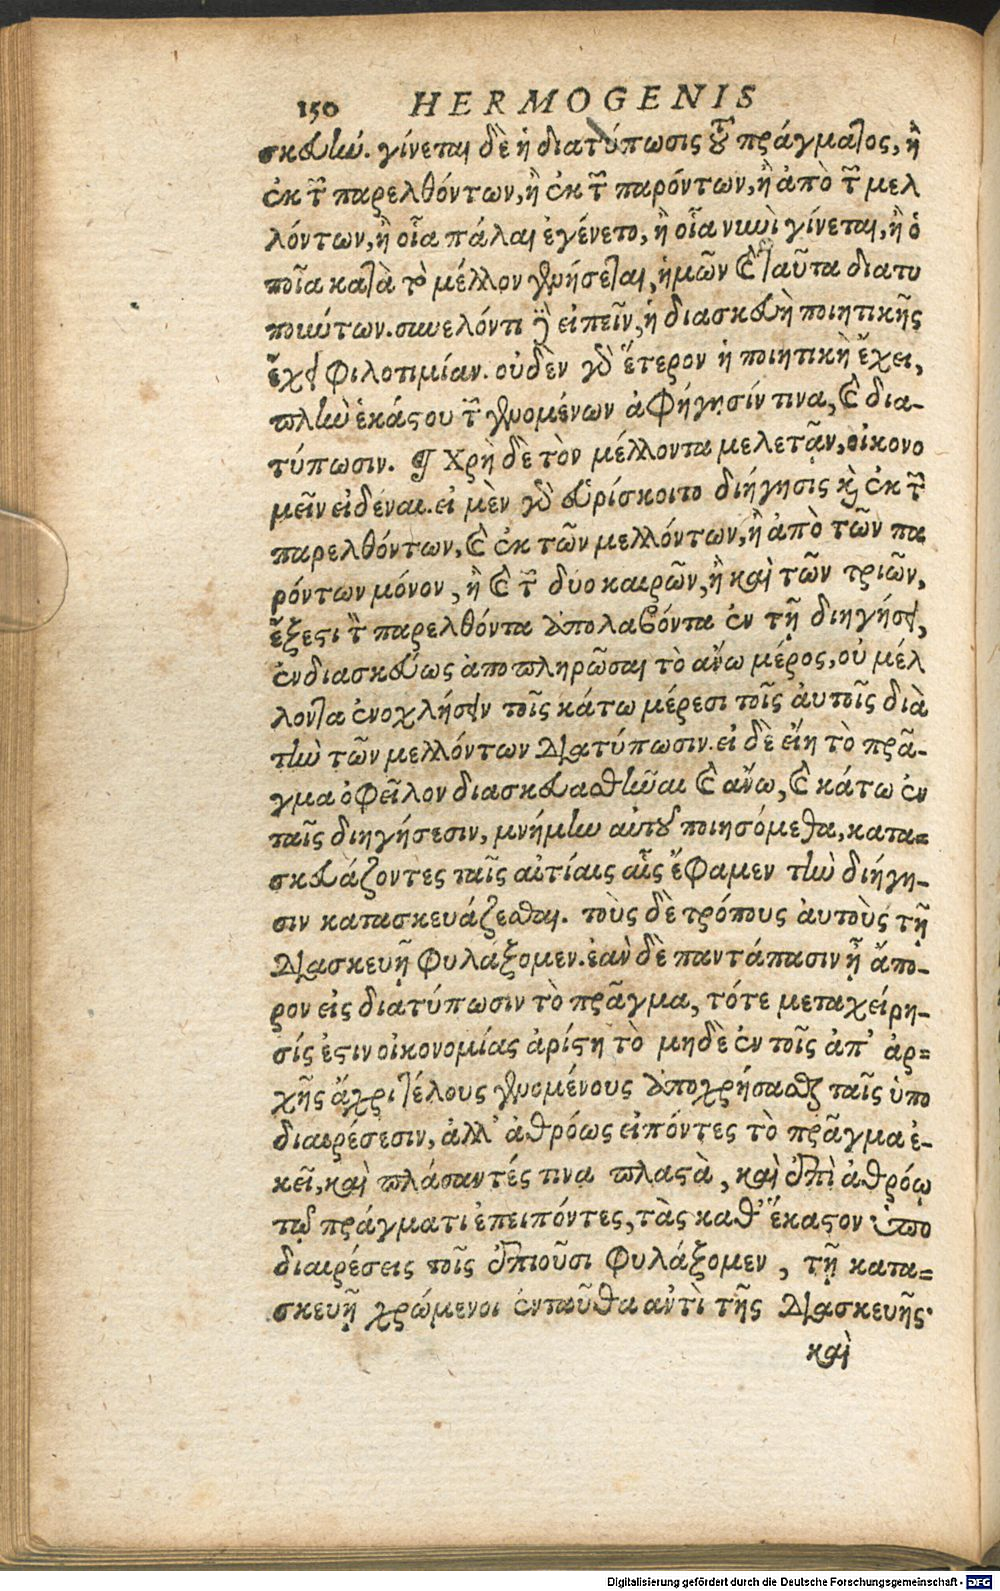 150 HERMOGENIS
σκευήν. γίνεται δὲ ἡ διατύπωσις τοῦ πράγματος, ἢ
ἐκ τῶν παρελθόντων, ἢ ἐκ τῶν παρόντων, ἢ ἀπὸ τῶν μελ
λόντων, ἢ οἷα πάλαι ἐγένετο, ἢ οἷα νυνὶ γίνεται, ἢ ὁ
ποῖα κατὰ τὸ μέλλον γενήσεται, ἡμῶν καὶ ταῦτα διατυ
πούντων. συνελόντι γὰρ εἰπεῖν, ἡ διασκευὴ ποιητικῆς
ἔχει φιλοτιμίαν. οὐδὲν γὰρ ἕτερον ἡ ποιητικὴ ἔχει,
πλὴν ἑκάστου τῶν γενομένων ἀφήγησίν τινα, καὶ δια-
τύπωσιν. ¶ Χρὴ δὲ τὸν μέλλοντα μελετᾷν, οἰκονο
μεῖν εἰδέναι. εἰ μὲν γὰρ εὑρίσκοιτο διήγησις καὶ ἐκ τῶν
παρελθόντων, καὶ ἐκ τῶν μελλόντων, ἢ ἀπὸ τῶν πα
ρόντων μόνον, ἢ καὶ τῶν δύο καιρῶν, ἢ καὶ τῶν τριῶν,
ἔξεστι τὸν παρελθόντα ἀπολαβόντα ἐν τῇ διηγήσει,
ἐνδιασκεύως ἀποπληρῶσαι τὸ ἄνω μέρος, οὐ μέλ
λοντα ἐνοχλήσειν τοῖς κάτω μέρεσι τοῖς αὐτοῖς διὰ
τὴν τῶν μελλόντων διατύπωσιν. εἰ δὲ εἴη τὸ πρᾶ-
γμα ὀφεῖλον διασκευασθῆναι καὶ ἄνω, καὶ κάτω ἐν
ταῖς διηγήσεσιν, μνήμην αὐτοῦ ποιησόμεθα, κατα-
σκευάζοντες ταῖς αἰτίαις αἷς ἔφαμεν τὴν διήγη-
σιν κατασκευάζεσθαι. τοὺς δὲ τρόπους αὐτοὺς τῇ
διασκευῇ φυλάξομεν. ἐὰν δὲ παντάπασιν ᾖ ἄπο-
ρον εἰς διατύπωσιν τὸ πρᾶγμα, τότε μεταχείρη-
σίς ἐστιν οἰκονομίας ἀρίστη τὸ μηδὲ ἐν τοῖς ἀπ’ ἀρ-
χῆς ἄχρι τέλους γενομένους ἀποχρήσασθαι ταῖς ὑπο
διαιρέσεσιν, ἀλλ’ ἀθρόως εἰπόντες τὸ πρᾶγμα ἐ-
κεῖ, καὶ πλάσαντές τινα πλαστὰ, καὶ ἐπὶ ἀθρόῳ
τῷ πράγματι ἐπειπόντες, τὰς καθ’ ἕκαστον ὑπο
διαιρέσεις τοῖς ἐπιοῦσι φυλάξομεν, τῇ κατα-
σκευῇ χρώμενοι ἐνταῦθα ἀντὶ τῆς διασκευῆς.
καὶ
Digitalisierung gefördert durch die Deutsche Forschungsgemeinschaft - DFG